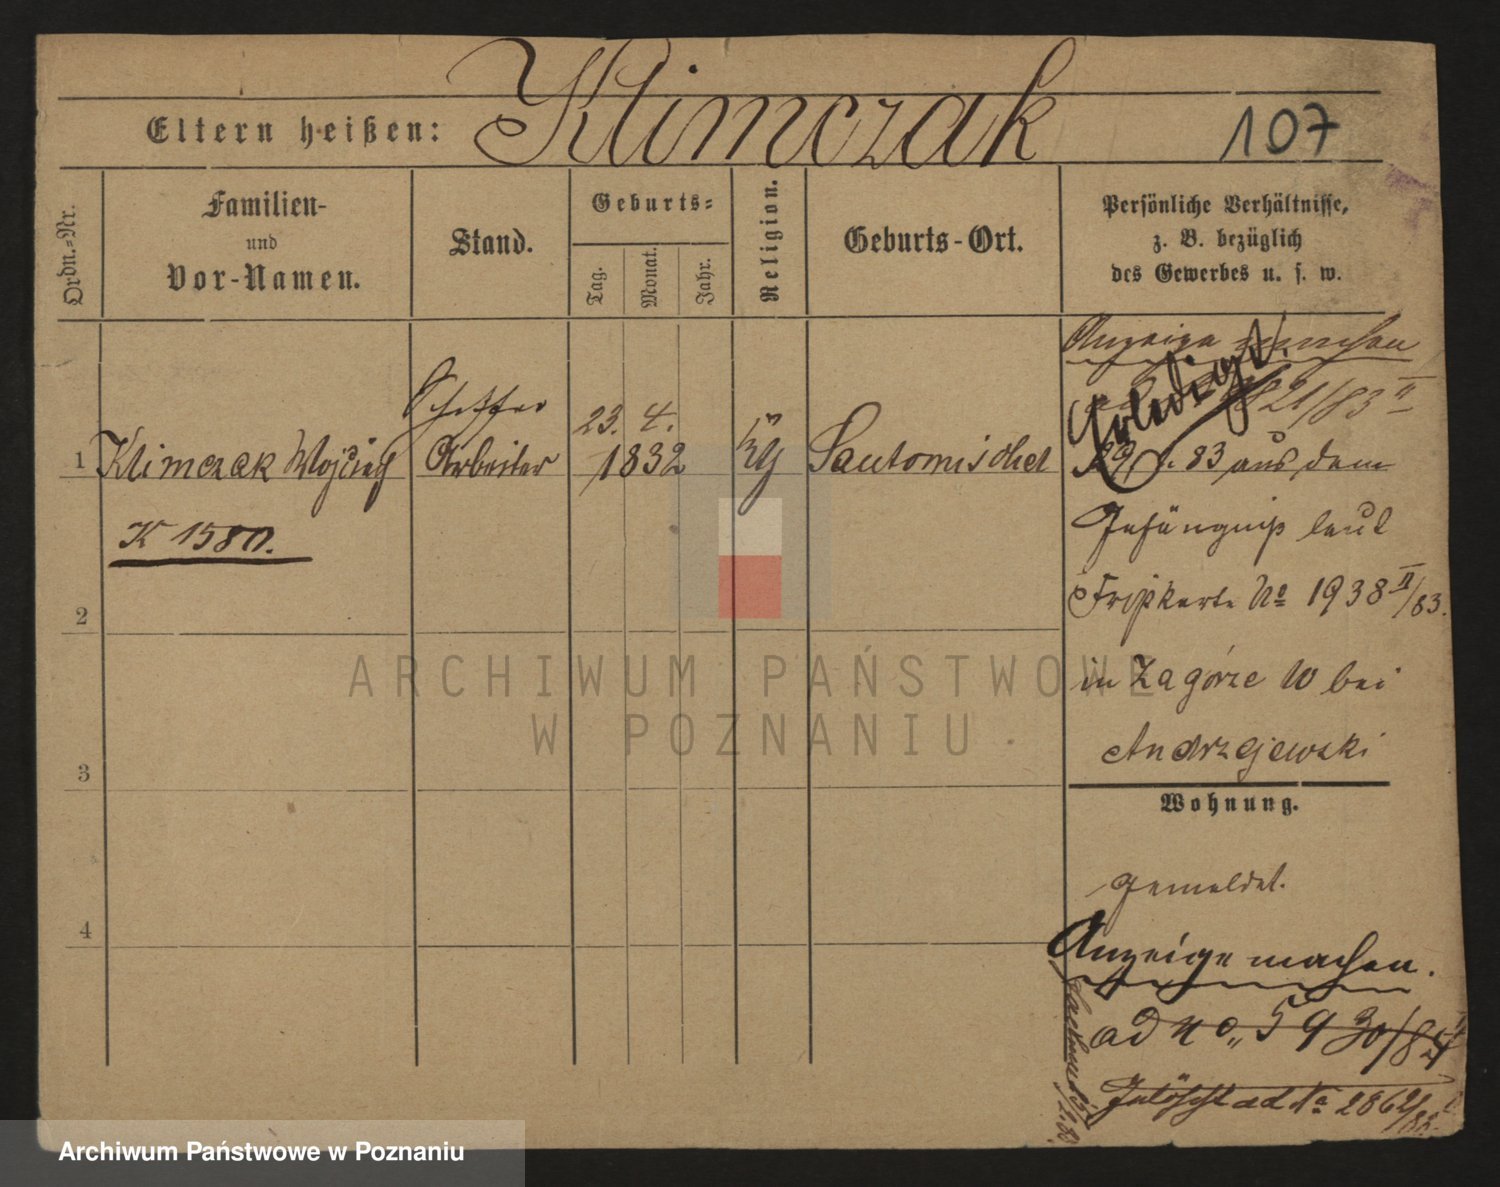 Klimczak
Eltern heißen:
107
Ordn.-Nr.
Familien-
und
Vor-Namen.
Stand.
Geburts-
Tag.
Monat.
Jahr.
Religion.
Geburts-Ort.
Persönliche Verhältnisse,
z. B. bezüglich
des Gewerbes u. s. w.
Anzeige machen
Erledigt.
821/83 II
1
Klimczak Wojciech
Arbeiter
23. 4.
1832
kg
Santomischel
83 aus dem
K 1580.
Gefängniß laut
No 1938 II/83.
2
in Zagórze 10 bei
Andrzejewski
3
Wohnung.
gemeldet.
4
Anzeige machen.
ad No 5930/84
Gelöscht ad No
ARCHIWUM PAŃSTWOWE
W POZNANIU
Archiwum Państwowe w Poznaniu